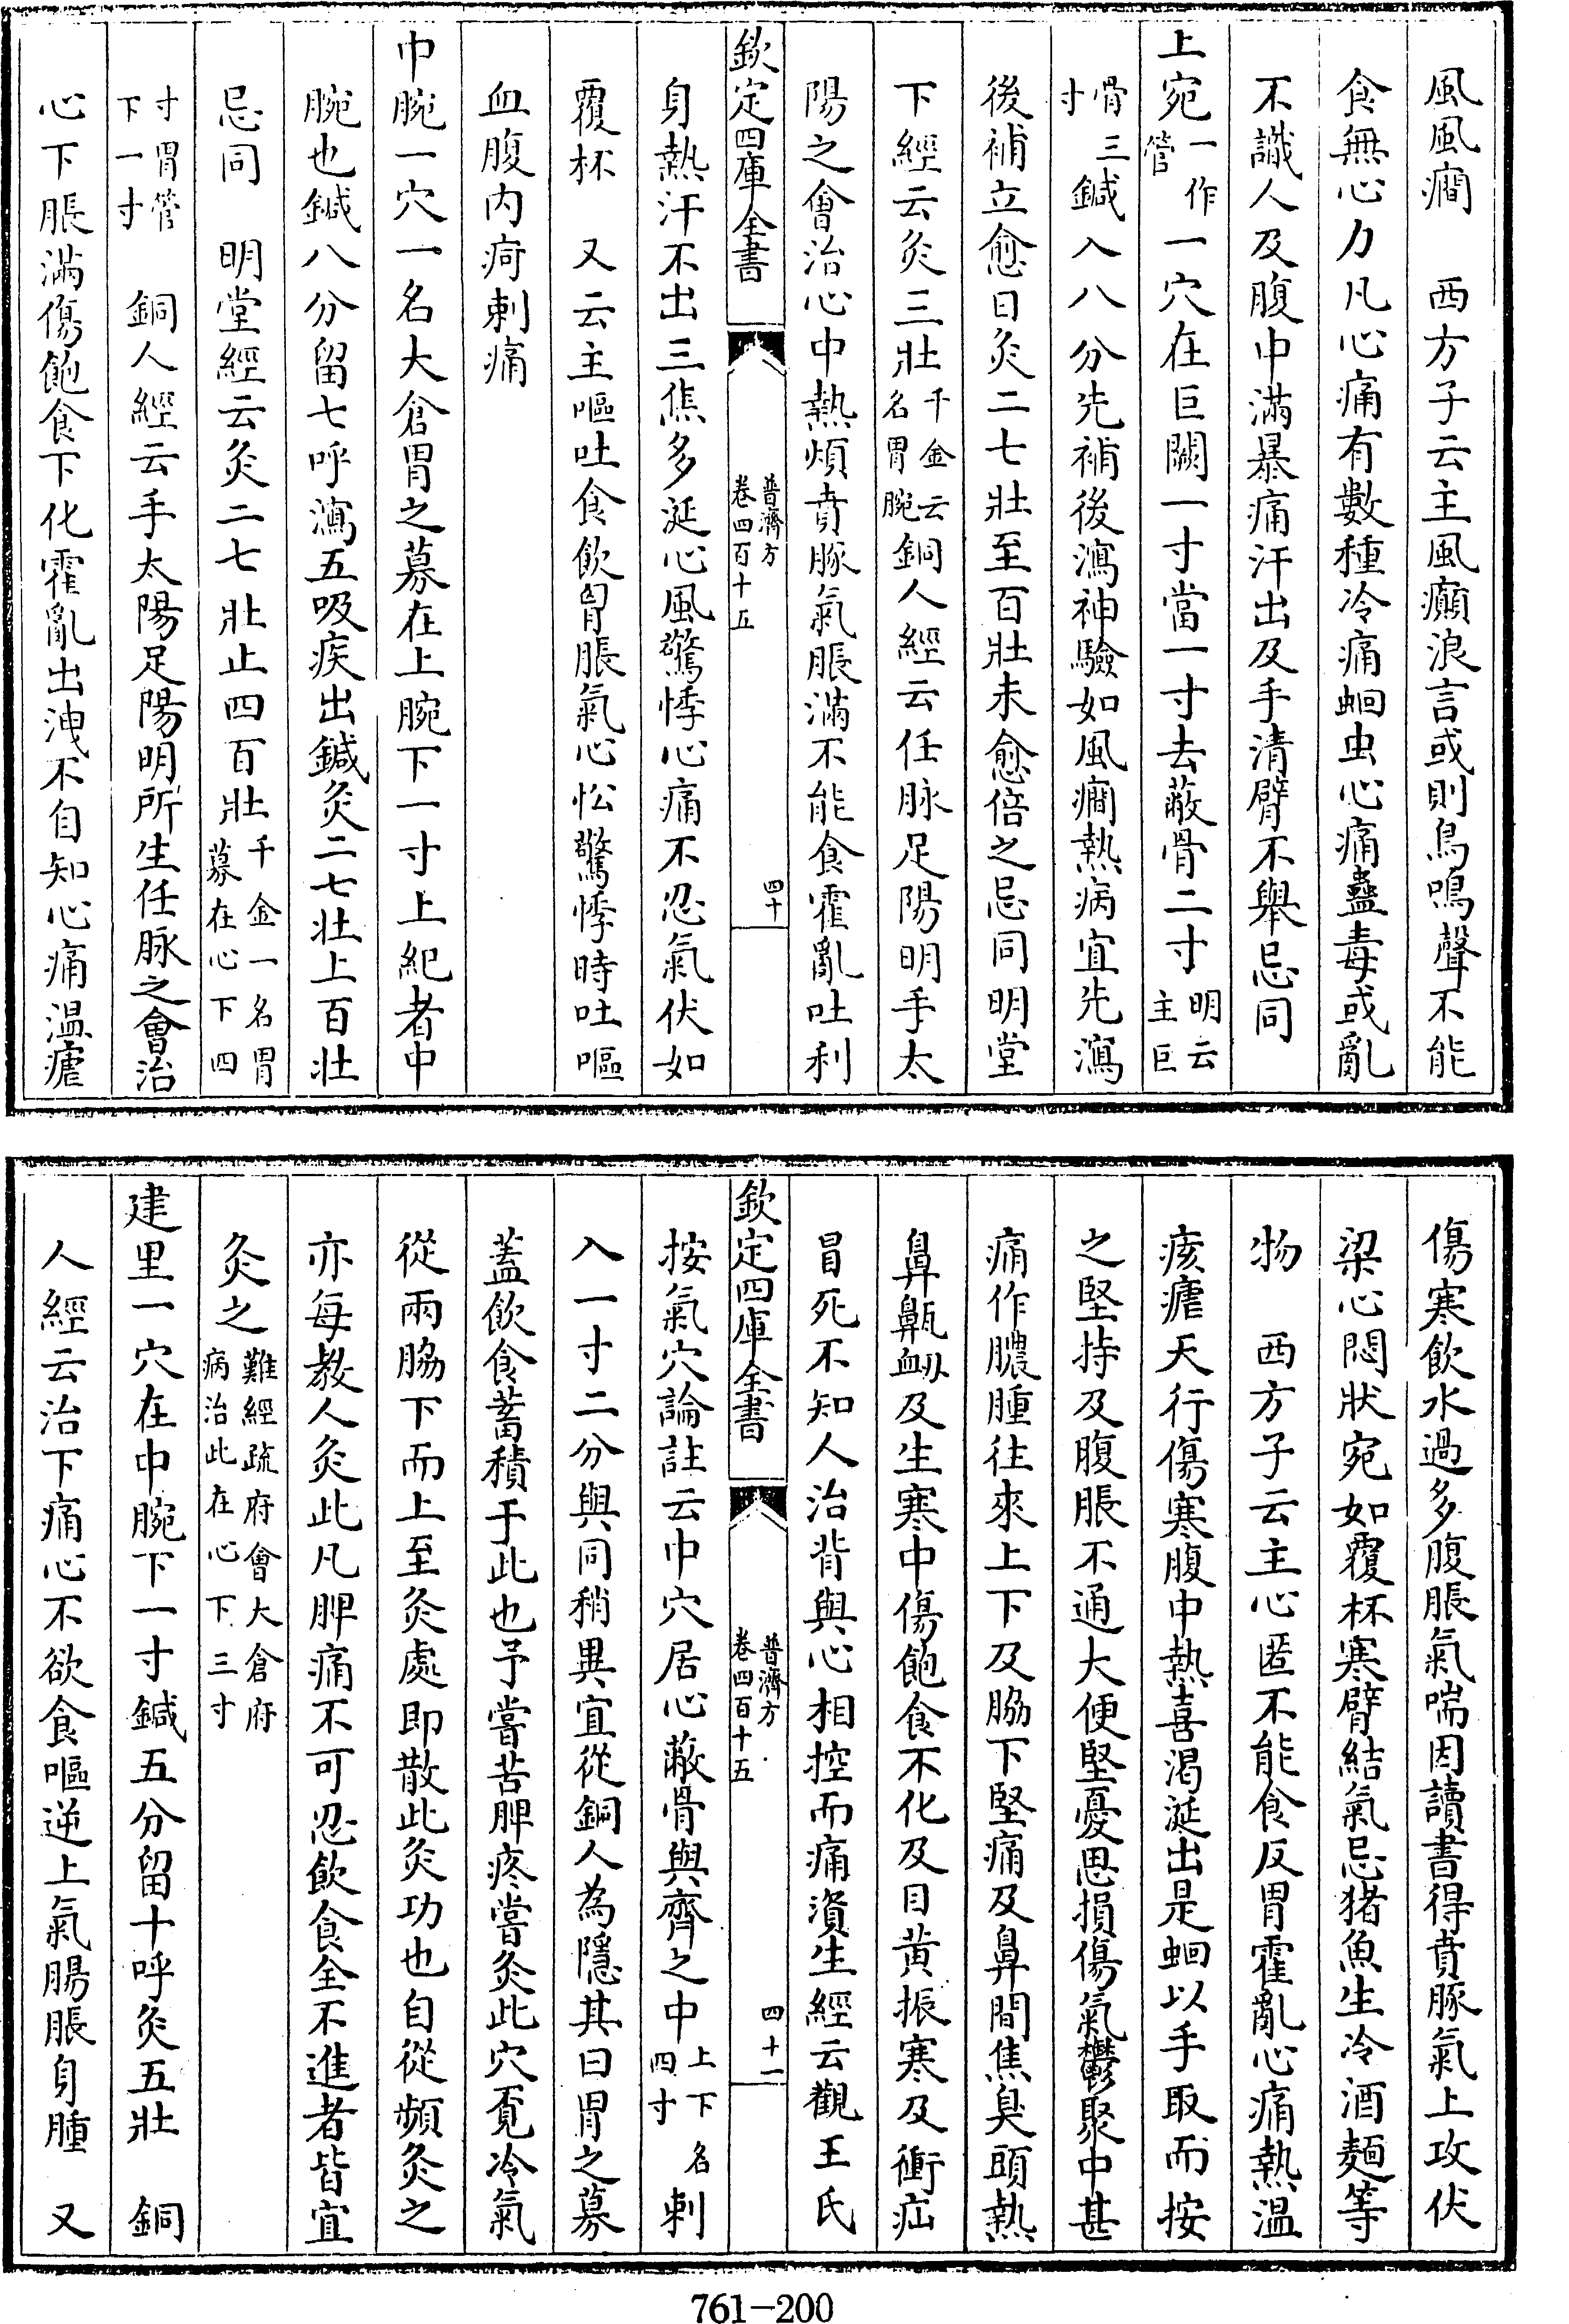 風風癎　西方子云主風癲浪言或則鳥鳴聲不能
食無心力凡心痛有數種冷痛蛔虫心痛蠱毒或亂
不識人及腹中滿暴痛汗出及手清臂不舉忌同
上宛一作管一穴在巨闕一寸當一寸去蔽骨二寸明云主巨
骨三寸鍼入八分先補後瀉神驗如風癎熱病宜先瀉
後補立愈日灸二七壯至百壯未愈倍之忌同明堂
下經云灸三壯千金云名胃腕銅人經云任脉足陽明手太
陽之會治心中熱煩賁豚氣脹滿不能食霍亂吐利
欽定四庫全書
普濟方
卷四百十五
四十
身熱汗不出三焦多涎心風驚悸心痛不忍氣伏如
覆杯　又云主嘔吐食飲胷脹氣心忪驚悸時吐嘔
血腹内疞刺痛
中腕一穴一名大倉胃之募在上腕下一寸上紀者中
腕也鍼八分留七呼瀉五吸疾出鍼灸二七壯上百壯
忌同　明堂經云灸二七壯止四百壯千金一名胃募在心下四
寸胃管下一寸　銅人經云手太陽足陽明所生任脉之會治
心下脹滿傷飽食下化霍亂出洩不自知心痛温瘧
傷寒飲水過多腹脹氣喘因讀書得賁豚氣上攻伏
梁心悶狀宛如覆杯寒臂結氣忌猪魚生冷酒麺等
物　西方子云主心匿不能食反胃霍亂心痛熱温
痎瘧天行傷寒腹中熱喜渴涎出是蛔以手取而按
之堅持及腹脹不通大便堅憂思損傷氣鬱聚中甚
痛作膿腫往來上下及脇下堅痛及鼻間焦臭頭熱
鼻鼽衂及生寒中傷飽食不化及目黄振寒及衝疝
冒死不知人治背與心相控而痛資生經云觀王氏
欽定四庫全書
普濟方
卷四百十五
四十一
按氣穴論註云中穴居心蔽骨與齊之中上下四寸名刺
入一寸二分與同稍異宜從銅人為隱其曰胃之募
蓋飲食蓄積于此也予嘗苦脾疼嘗灸此穴覔冷氣
從兩脇下而上至灸處即散此灸功也自從頻灸之
亦每教人灸此凡脾痛不可忍飲食全不進者皆宜
灸之難經疏府會大倉府病治此在心下三寸
建里一穴在中腕下一寸鍼五分留十呼灸五壯　銅
人經云治下痛心不欲食嘔逆上氣腸脹身腫　又
761-200